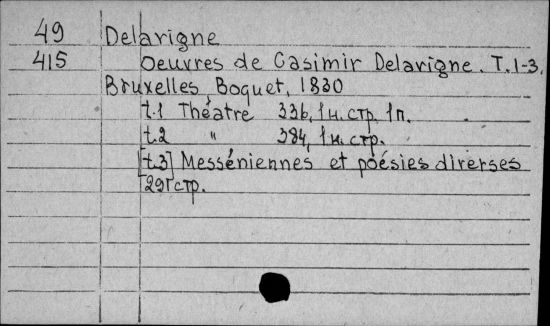 49 Delavigne
415 Oeuvres de Casimir Delavigne. T. 1-3.
Bruxelles, Boquet, 1830
t.1 Théatre 336, 1 н. стр. 1п.
t.2 " 384, 1 н. стр.
[t.3] Messéniennes et poésies diverses
291 стр.